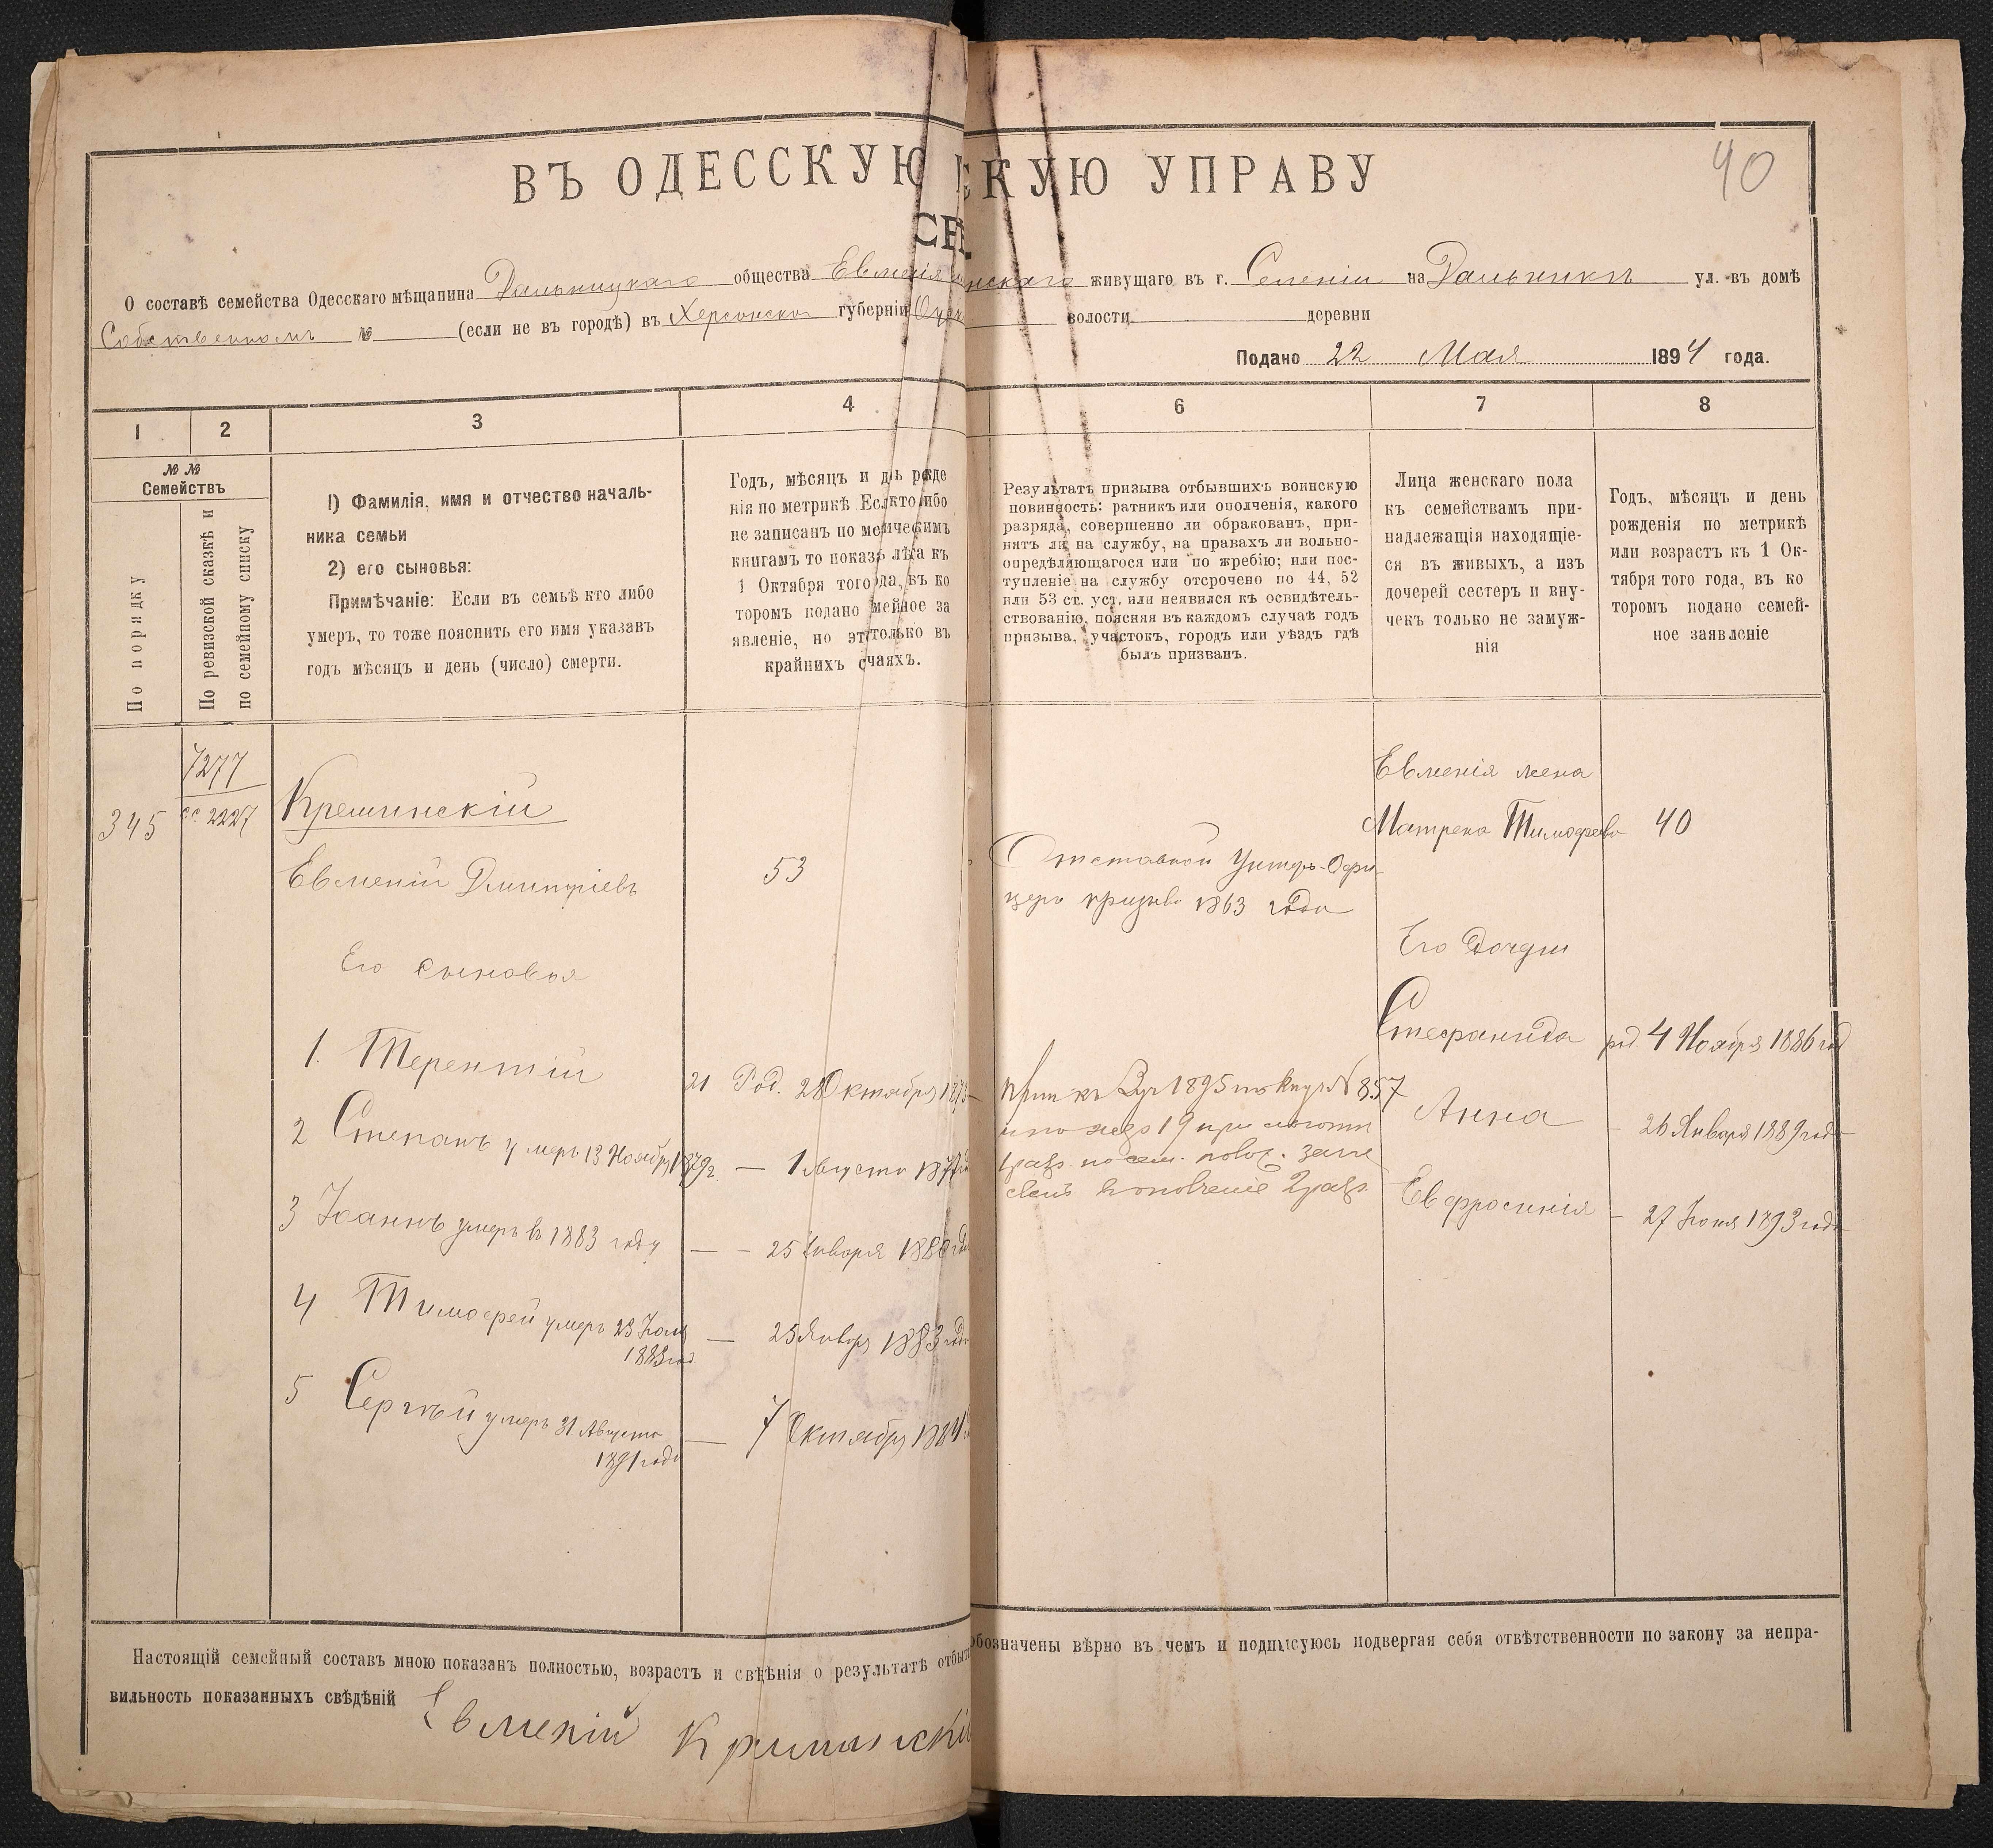 40
ВЪ ОДЕССКУЮ СКУЮ УПРАВУ
О составѣ семейства Одесскаго мѣщанина Дальницкаго общества Евменія инскаго живущаго въ г. Селеніи на Дальникъ ул. въ домѣ
Собственномъ № (если не въ городѣ) въ Херсонско губерніи волости деревни
Подано 22 Мая 1894 года.
1 2 3 4 6 7 8
№ №
Семействъ
По порядку
По ревизской сказкѣ и
по семейному списку
1) Фамилія, имя и отчество началь-
ника семьи
2) его сыновья:
Примѣчаніе: Если въ семьѣ кто либо
умеръ, то тоже пояснить его имя указавъ
годъ мѣсяцъ и день (число) смерти.
Годъ, мѣсяцъ и
нія по метрикѣ
не записанъ по
книгамъ то показ лѣта къ
1 Октября того да, въ ко
торомъ подано мейное за
явленіе, но эт только въ
крайнихъ с чаяхъ.
Результатъ призыва отбывшихъ воинскую
повинность: ратникъ или ополченія, какого
разряда, совершенно ли обракованъ, при-
нятъ ли на службу, на правахъ ли вольно-
опредѣляющагося или по жребію; или пос-
тупленіе на службу отсрочено по 44, 52
или 53 ст. уст. или неявился къ освидѣтель-
ствованію, поясняя въ каждомъ случаѣ годъ
призыва, участокъ, городъ или уѣздъ гдѣ
былъ призванъ.
Лица женскаго пола
къ семействамъ при-
надлежащія находящіе-
ся въ живыхъ, а изъ
дочерей сестеръ и вну-
чекъ только не замуж-
нія
Годъ, мѣсяцъ и день
рожденія по метрикѣ
или возрастъ къ 1 Ок-
тября того года, въ ко
торомъ подано семей-
ное заявленіе
7277
345 сс. 2227 Кремінскій
Евменій Дмитріевъ 53
Отставной Унтеръ-Офи-
церъ призыва 1863 года
Евменія жена
Матрена Тимофеева 40
Его сыновья
Его Дочери
1. Терентій 21 Род. 28 Октября
2 Степанъ умеръ 13 Ноября 1879г. — 1 Августа 1877
3 Іоаннъ умеръ въ 1883 году — — 25 Января 188
4 Тимофей умеръ 23 Іюля — 25 Января 1883 года
1883 год
5 Сергѣй умеръ 31 Августа — 7 Октября 1884
1891 года
1895 № 857
19 при
Стефанида род. 4 Ноября 1886 год
Анна — 26 Января 1889 года
Евфросинія — 27 Іюня 1893 года
Настоящій семейный составъ мною показанъ полностью, возрастъ и свѣдѣнія о результатѣ отбыт обозначены вѣрно въ чемъ и подписуюсь подвергая себя отвѣтственности по закону за непра-
вильность показанныхъ свѣдѣній Евменій